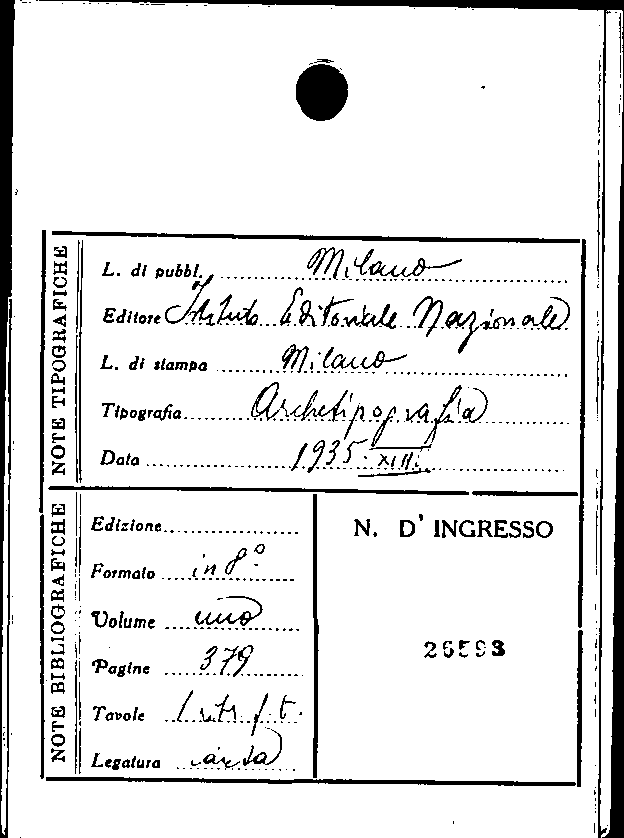 NOTE TIPOGRAFICHE
L. di pubbl. Milano
Editore Istituto Editoriale Nazionale
L. di stampa Milano
Tipografia Archetipografia
Data 1935. XIII.
NOTE BIBLIOGRAFICHE
Edizione
Formato in 8º
Volume uno
Pagine 379
Tavole 1 ritr. f. t.
Legatura carta
N. D' INGRESSO
26593